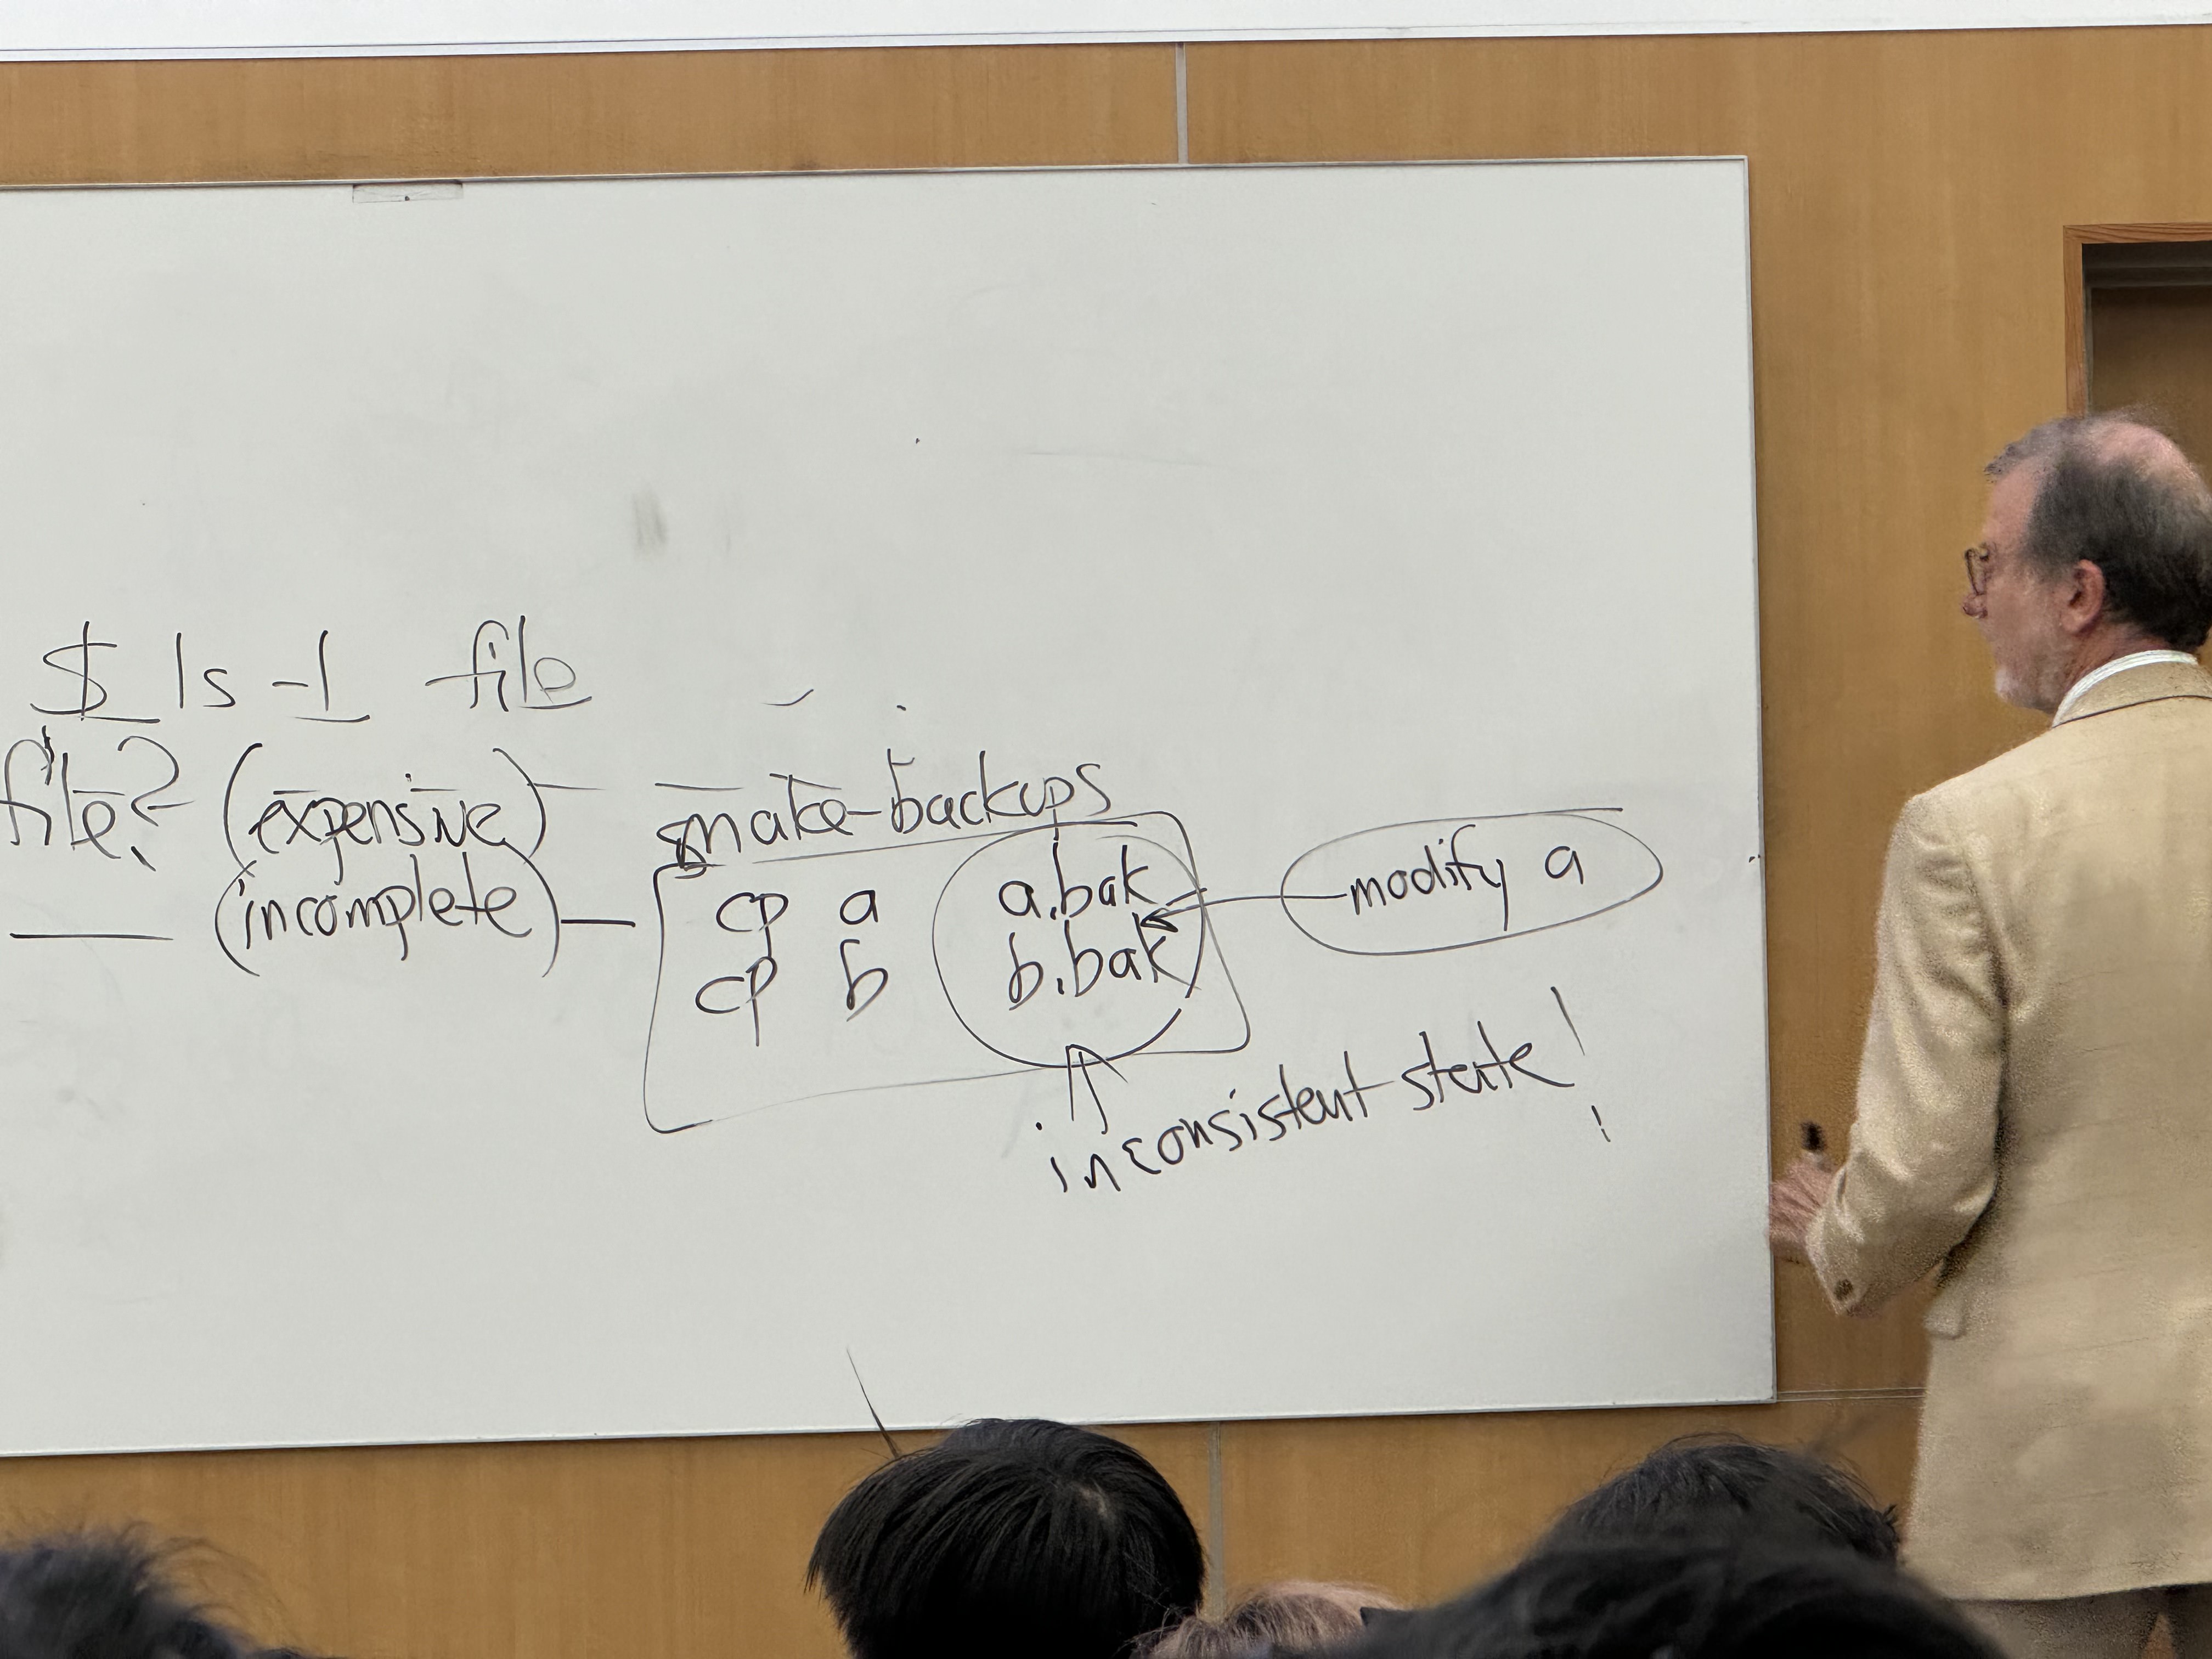 $ ls -l file
file? (expensive)
(incomplete)
make-backups
cp a a.bak
cp b b.bak
modify a
inconsistent state!